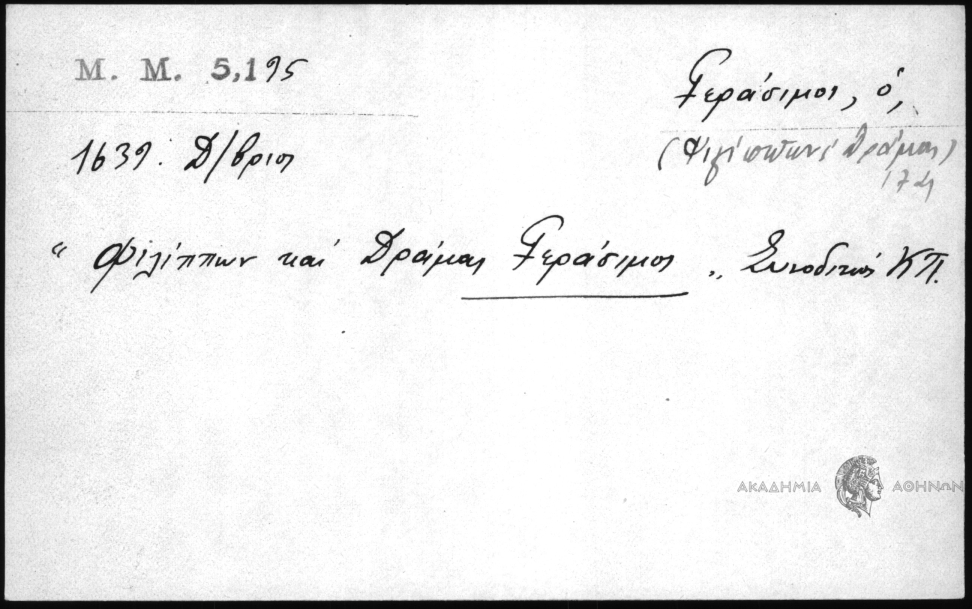 Μ. Μ. 5,195
Γεράσιμος, ὁ,
(Φιλίππων & Δράμας)
17 αἰ
1639. Δ/βριος
“ Φιλίππων καὶ Δράμας Γεράσιμος „ Συνοδικός ΚΠ.
ΑΚΑΔΗΜΙΑ ΑΘΗΝΩΝ